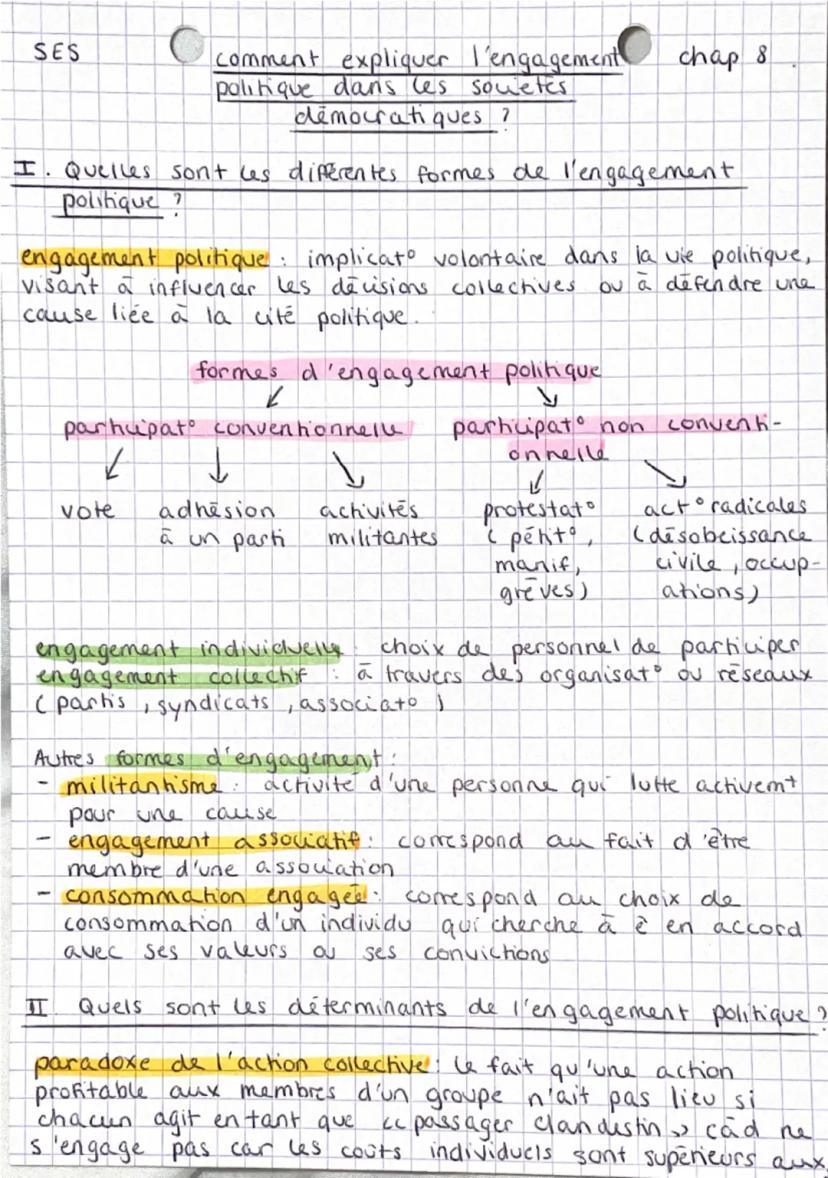 SES
comment expliquer l'engagement
chap 8
politique dans les sociétés
démocratiques ?
I. Quelles sont les différentes formes de l'engagement
politique ?
engagement politique : implicat° volontaire dans la vie politique,
visant à influencer les décisions collectives ou à défendre une
cause liée à la cité politique.
formes d'engagement politique
↙ ↘
participat° conventionnelle participat° non conventi-
onnelle
↙ ↓ ↘ ↓ ↘
vote adhésion activités protestat° act° radicales
à un parti militantes ( pétit°, (désobeissance
manif, civile, occup-
grèves) ations)
engagement individuelle : choix de personnel de participer
engagement collectif : à travers des organisat° ou réseaux
( partis, syndicats, associat° )
Autres formes d'engagement :
- militantisme : activité d'une personne qui lutte activemt
pour une cause
- engagement associatif : correspond au fait d'être
membre d'une association
- consommation engagée : correspond au choix de
consommation d'un individu qui cherche à ê en accord
avec ses valeurs ou ses convictions
II Quels sont les déterminants de l'engagement politique ?
paradoxe de l'action collective : le fait qu'une action
profitable aux membres d'un groupe n'ait pas lieu si
chacun agit en tant que << passager clandestin >> càd ne
s'engage pas car les coûts individuels sont supérieurs aux